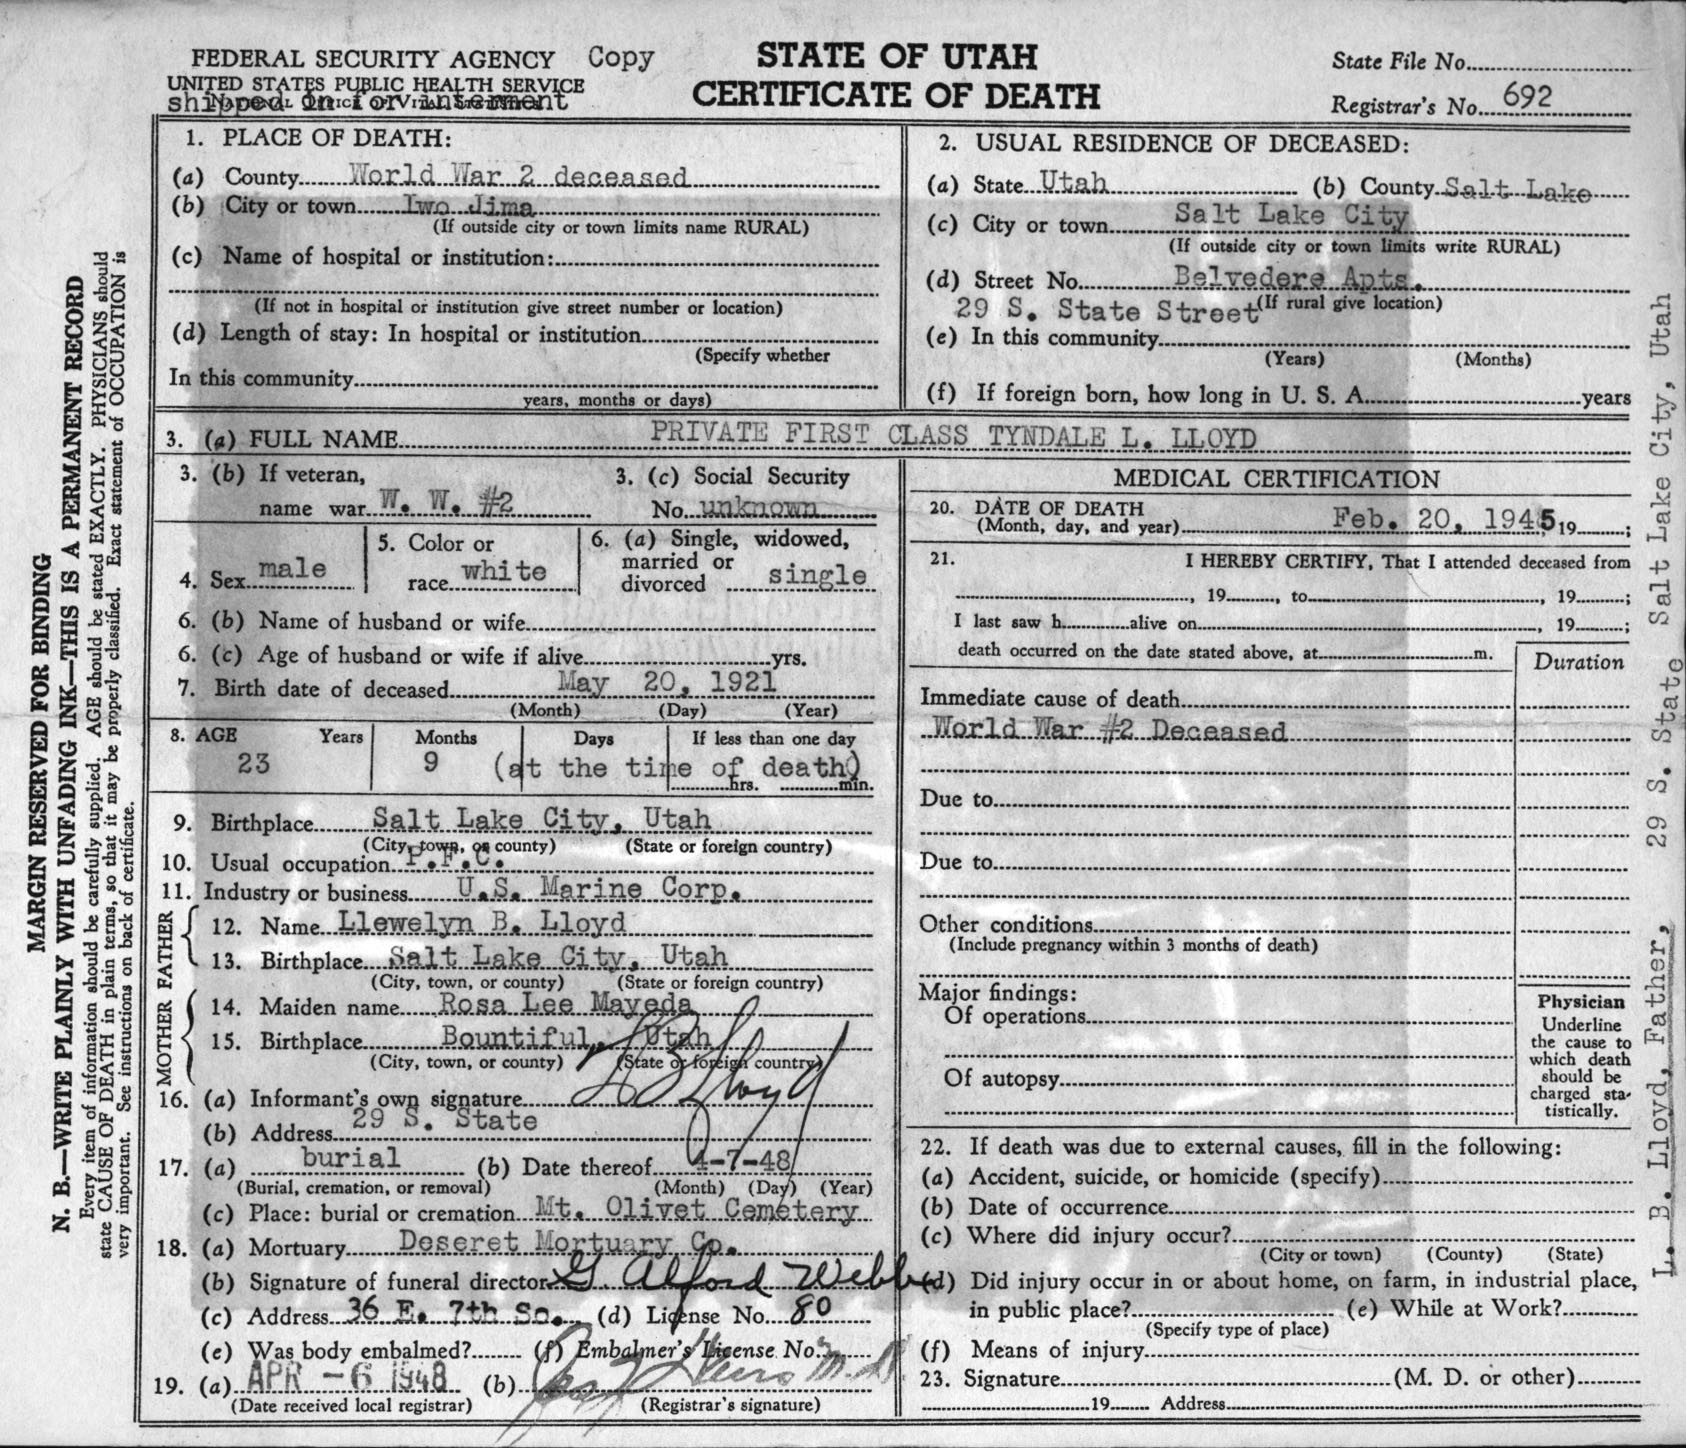 FEDERAL SECURITY AGENCY Copy
UNITED STATES PUBLIC HEALTH SERVICE
shipped in for interment
STATE OF UTAH
CERTIFICATE OF DEATH
State File No.
Registrar's No. 692
1. PLACE OF DEATH:
(a) County World War 2 deceased
(b) City or town Iwo Jima
(If outside city or town limits name RURAL)
(c) Name of hospital or institution:
(If not in hospital or institution give street number or location)
(d) Length of stay: In hospital or institution
(Specify whether
In this community
years, months or days)
2. USUAL RESIDENCE OF DECEASED:
(a) State Utah (b) County Salt Lake
(c) City or town Salt Lake City
(If outside city or town limits write RURAL)
(d) Street No. Belvedere Apts.
29 S. State Street (If rural give location)
(e) In this community
(Years) (Months)
(f) If foreign born, how long in U. S. A. years
3. (a) FULL NAME PRIVATE FIRST CLASS TYNDALE L. LLOYD
3. (b) If veteran,
name war W. W. #2
3. (c) Social Security
No. unknown
4. Sex male
5. Color or
race white
6. (a) Single, widowed,
married or
divorced single
6. (b) Name of husband or wife
6. (c) Age of husband or wife if alive yrs.
7. Birth date of deceased May 20, 1921
(Month) (Day) (Year)
8. AGE Years Months Days If less than one day
23 9 (at the time of death)
hrs. min.
9. Birthplace Salt Lake City, Utah
(City, town, or county) (State or foreign country)
10. Usual occupation P.F.C.
11. Industry or business U.S. Marine Corp.
FATHER
12. Name Llewelyn B. Lloyd
13. Birthplace Salt Lake City, Utah
(City, town, or county) (State or foreign country)
MOTHER
14. Maiden name Rosa Lee Mayeda
15. Birthplace Bountiful, Utah
(City, town, or county) (State or foreign country)
16. (a) Informant's own signature L B Lloyd
(b) Address 29 S. State
17. (a) burial (b) Date thereof 4-7-48
(Burial, cremation, or removal) (Month) (Day) (Year)
(c) Place: burial or cremation Mt. Olivet Cemetery
18. (a) Mortuary Deseret Mortuary Co.
(b) Signature of funeral director G Alford Webb
(c) Address 36 E. 7th So. (d) License No. 80
(e) Was body embalmed? (f) Embalmer's License No.
19. (a) APR -6 1948 (b) M.D.
(Date received local registrar) (Registrar's signature)
MEDICAL CERTIFICATION
20. DATE OF DEATH
(Month, day, and year) Feb. 20, 1945 19 ;
21. I HEREBY CERTIFY, That I attended deceased from
, 19 , to , 19 ;
I last saw h alive on , 19 ;
death occurred on the date stated above, at m.
Duration
Immediate cause of death
World War #2 Deceased
Due to
Due to
Other conditions
(Include pregnancy within 3 months of death)
Major findings:
Of operations
Of autopsy
Physician
Underline
the cause to
which death
should be
charged sta-
tistically.
22. If death was due to external causes, fill in the following:
(a) Accident, suicide, or homicide (specify)
(b) Date of occurrence
(c) Where did injury occur?
(City or town) (County) (State)
(d) Did injury occur in or about home, on farm, in industrial place,
in public place? (e) While at Work?
(Specify type of place)
(f) Means of injury
23. Signature (M. D. or other)
19 Address
MARGIN RESERVED FOR BINDING
N. B.—WRITE PLAINLY WITH UNFADING INK—THIS IS A PERMANENT RECORD
Every item of information should be carefully supplied. AGE should be stated EXACTLY. PHYSICIANS should
state CAUSE OF DEATH in plain terms, so that it may be properly classified. Exact statement of OCCUPATION is
very important. See instructions on back of certificate.
L. B. Lloyd, Father, 29 S. State Salt Lake City, Utah